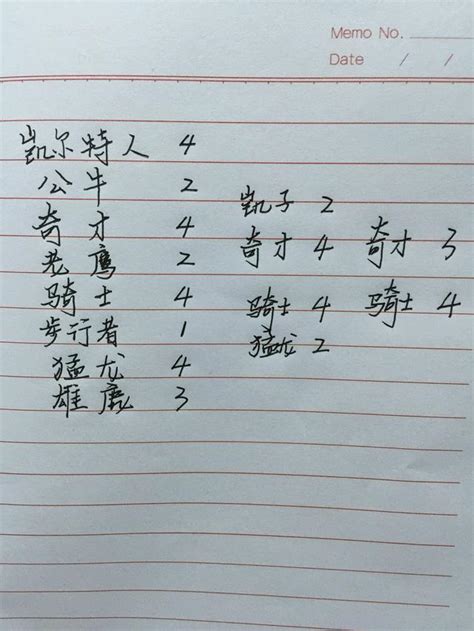 Memo No.
Date / /
凯尔特人 4
公牛 2
奇才 4
老鹰 2
骑士 4
步行者 1
猛龙 4
雄鹿 3
凯子 2
奇才 4 奇才 3
骑士 4 骑士 4
猛龙 2